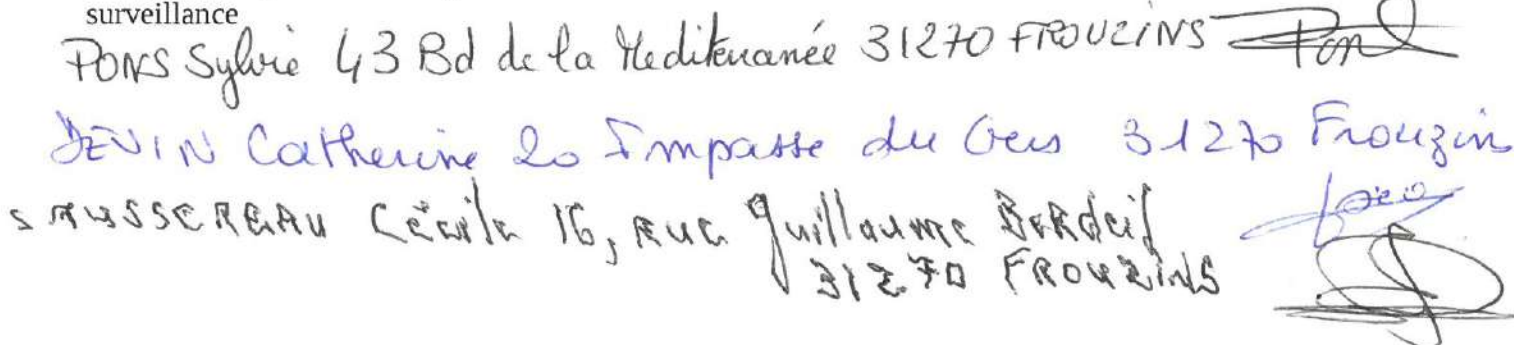 surveillance
PONS Sylvie 43 Bd de la Mediterranée 31270 FROUZINS
DEVIN Catherine 20 Impasse du Gers 31270 Frouzins
SAUSSEREAU Cécile 16, rue Guillaume Bordeil
31270 FROUZINS